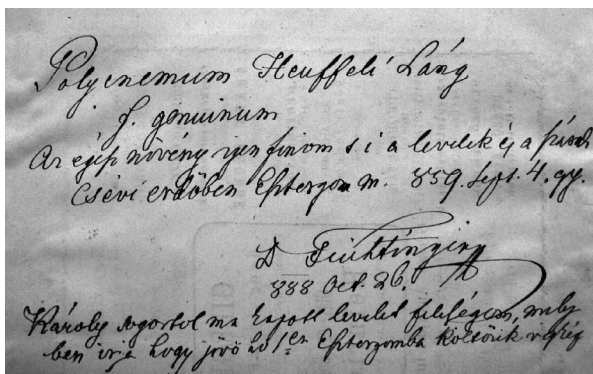 Polycnemum Heuffeli Láng
f. genuinum
Az égész növény igen finom s i a levelek és a
Csévi erdőben Esztergom m. 859. Sept. 4. gy.
D Feichtinger
888 Oct. 26.
Károly ma kapott levelet feleségem, mely
ben irja hogy jövő hó 1én Esztergomba végkép